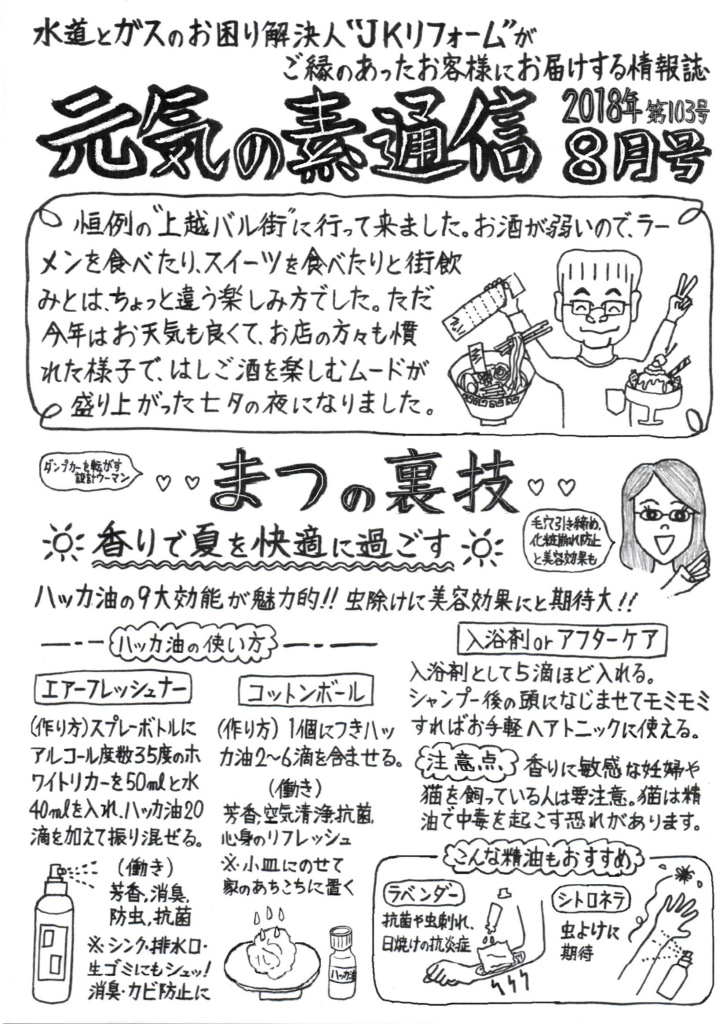 水道とガスのお困り解決人“JKリフォーム”が
ご縁のあったお客様にお届けする情報誌
元気の素通信
2018年 第103号
8月号
恒例の“上越バル街”に行って来ました。お酒が弱いので、ラー
メンを食べたり、スイーツを食べたりと街飲
みとは、ちょっと違う楽しみ方でした。ただ
今年はお天気も良くて、お店の方々も慣
れた様子で、はしご酒を楽しむムードが
盛り上がった七夕の夜になりました。
ダンプカーを転がす
設計ウーマン
♡ ♡ まつの裏技 ♡ ♡
香りで夏を快適に過ごす
毛穴引き締め、
化粧崩れ防止
と美容効果も
ハッカ油の9大効能が魅力的!! 虫除けに美容効果にと期待大!!
ハッカ油の使い方
エアーフレッシュナー
(作り方)スプレーボトルに
アルコール度数35度のホ
ワイトリカーを50mlと水
40mlを入れ、ハッカ油20
滴を加えて振り混ぜる。
(働き)
芳香,消臭,
防虫,抗菌
※シンク,排水口・
生ゴミにもシュッ!
消臭・カビ防止に
コットンボール
(作り方) 1個につきハッ
カ油2〜6滴を含ませる。
(働き)
芳香,空気清浄,抗菌,
心身のリフレッシュ
※小皿にのせて
家のあちこちに置く
ハッカ油
入浴剤orアフターケア
入浴剤として5滴ほど入れる。
シャンプー後の頭になじませてモミモミ
すればお手軽ヘアトニックに使える。
注意点
香りに敏感な妊婦や
猫を飼っている人は要注意。猫は精
油で中毒を起こす恐れがあります。
こんな精油もおすすめ
ラベンダー
抗菌や虫刺れ、
日焼けの抗炎症
シトロネラ
虫よけに
期待